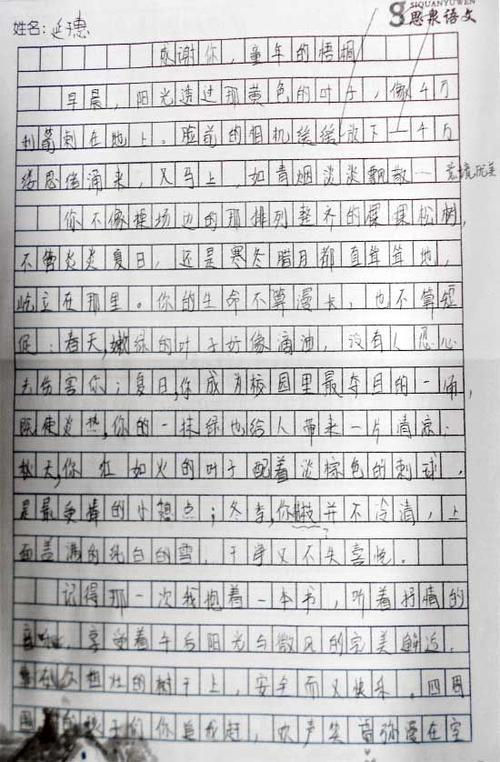 SIQUANYUWEN
思泉语文
姓名: 延穗
感谢你，童年的梧桐
早晨，阳光透过那黄色的叶子，像千万
利箭刺在地上。脸前的相机缓缓放下——千万
缕思绪涌来，又马上，如青烟淡淡飘散… 意境优美
你不像操场边的那排列整齐的棵棵松树，
不管炎炎夏日，还是寒冬腊月都直耸耸地，
屹立在那里。你的生命不算漫长，也不算短
促：春天，嫩绿的叶子好像滴油，没有人忍心
去伤害你；夏日，你成为校园里最夺目的一角，
既使炎热，你的一抹绿也给人带来一片清凉；
秋天，你红如火的叶子配着淡棕色的刺球，
是最美丽的小甜点；冬季，你枝并不冷清，上
面盖满的纯白的雪，干净又不失喜悦。
记得那一次我抱着一本书，听着抒情的
音，享受着午后阳光与微风的完美邂逅，
在粗壮的树干上，安全而又快乐。四周
围的孩子们你追我赶，欢声笑语弥漫在空